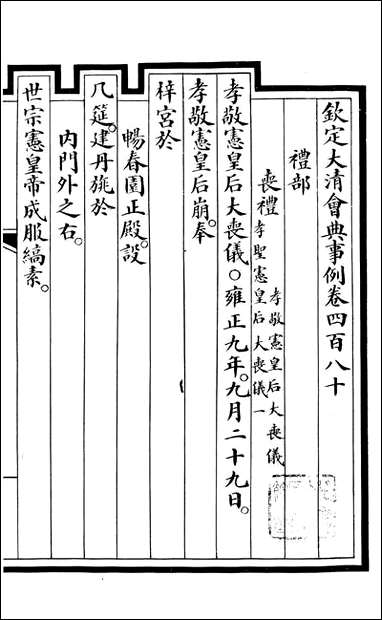 欽定大清會典事例卷四百八十
禮部
喪禮
孝敬憲皇后大喪儀
孝聖憲皇后大喪儀一
孝敬憲皇后大喪儀○雍正九年。九月二十九日。
孝敬憲皇后崩。奉
梓宮於
暢春園正殿。設
几筵。建丹旐於
內門外之右。
世宗憲皇帝成服縞素。